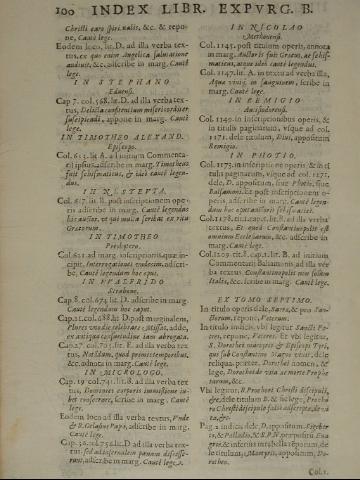 100 INDEX LIBR. EXPVRG. B.
Christi caro spiritualis, &c. & repo-
ne, Cautè lege.
Eodem loco, lit. D. ad illa verba tex-
tus, ex quo enim Angelica salutatione
audiuit, &c. adscribe in marg. Cautè
lege.
IN STEPHANO
Eduensi.
Cap 7. col. 568. lit. D. ad illa verba tex-
tus,
suscipiendi, appone in marg. Cautè
lege.
IN TIMOTHEO ALEXAND.
Episcopo.
Col. 611. lit A. ad initium Commenta-
rij ipsius, adscribe in marg. Timotheus
fuit schismaticus, & ideò cautè legen-
dus.
IN
Col. 617. lit. B. post inscriptionem ope-
ris adscribe in marg. Cautè legendus
hic auctor,
Graecorum.
IN TIMOTHEO
Presbytero.
Col. 621. ad marg. inscriptionis, quae in-
cipit, adscri-
be, Cautè legendum hoc opus.
IN VVALFRIDO
Strabone.
Cap 8. col. 674. lit. D. adscribe in marg.
Cautè legendum hoc caput.
Cap. 21. col. 688. lit. D. post marginalem,
Plures vno die celebrare Missas, adde,
ex antiqua consuetudine iam abrogata.
Cap. 27. col. 703. lit. B. ad illa verba tex-
tus, primis temporibus,
&c. adnota in marg. Cautè lege.
IN MICROLOGO.
Cap. 19. col. 741. lit. B. ad illa verba tex-
tus, Dominici corporis
bet reseruare, scribe in marg. Cautè
lege.
Eodem loco ad illa verba textus, Vnde
& B. Gelasius Papa, adscribe in marg.
Cautè lege.
Cap. lit. D. ad illa verba tex-
tus, sed ad
runt, adscribe in marg. Cautè lege.
IN NICOLAO
Methonensi.
Col. 1145. post titulum operis, annota
in marg. Auctor is fuit Graecus, ac schis-
maticus, atque ideò cautè legendus.
Col. 1147. lit. A. in textu ad verba illa,
Aqua vertitur in sanguinem, scribe in
marg. Cautè lege.
IN REMIGIO
Antisiodorensi.
Col. 1149. in inscriptionibus operis, &
in titulis paginarum, vsque ad col.
1171. dele titulum, Diui, appositum
Remigio.
IN PHOTIO.
Col. 1173. in inscriptione operis, & in ti-
tulis paginarum, vsque ad col. 1171.
dele, D. appositum, siue Photio, siue
Balsamoni. Et post inscriptionem o-
peris, adscribe in marg. Cautè legen-
dum hoc opus auctoris schismatici.
Col. 1178. cap. 5. lit. B. ad illa verba
textus, Et quod Constantinopolis est
omnium Ecclesiarum, &c. adscribe in
marg. Cautè lege.
Col. 1209. tit. 8. cap. 1. lit. B. ad initium
Commentarij Balsamonis ad illa ver-
ba textus Constantinopolis non solùm
Italis, &c. scribe in marg. Cautè lege.
EX TOMO SEPTIMO.
In titulo operis dele, Sacra, & pro Pa-
trum, repone, Veterum.
In titulo indicis, vbi legitur Sancti Pa-
tres, repone, Patres. Et vbi legitur,
S. Dorothei martyris & Episcopi Tyri,
qui sub Constantino Magno vixit, dele
reliqua praeter, Dorothei nomen, &
lege, Dorothei de vita ac morte Prophe-
tarum, &c.
Vbi legitur, B. Prochori Christi discipuli,
&c. dele titulum B. & sic lege, Procho-
ro Christi discipulo falsò adscripta, de vi-
ta, &c.
Pag. 2. indicis dele, D. appositum, Eua-
grio, & Palladio, & S. P. N. praepositum
& inferius
le titulum, Martyris, appositum, Do-
rotheo.
Col. 1.